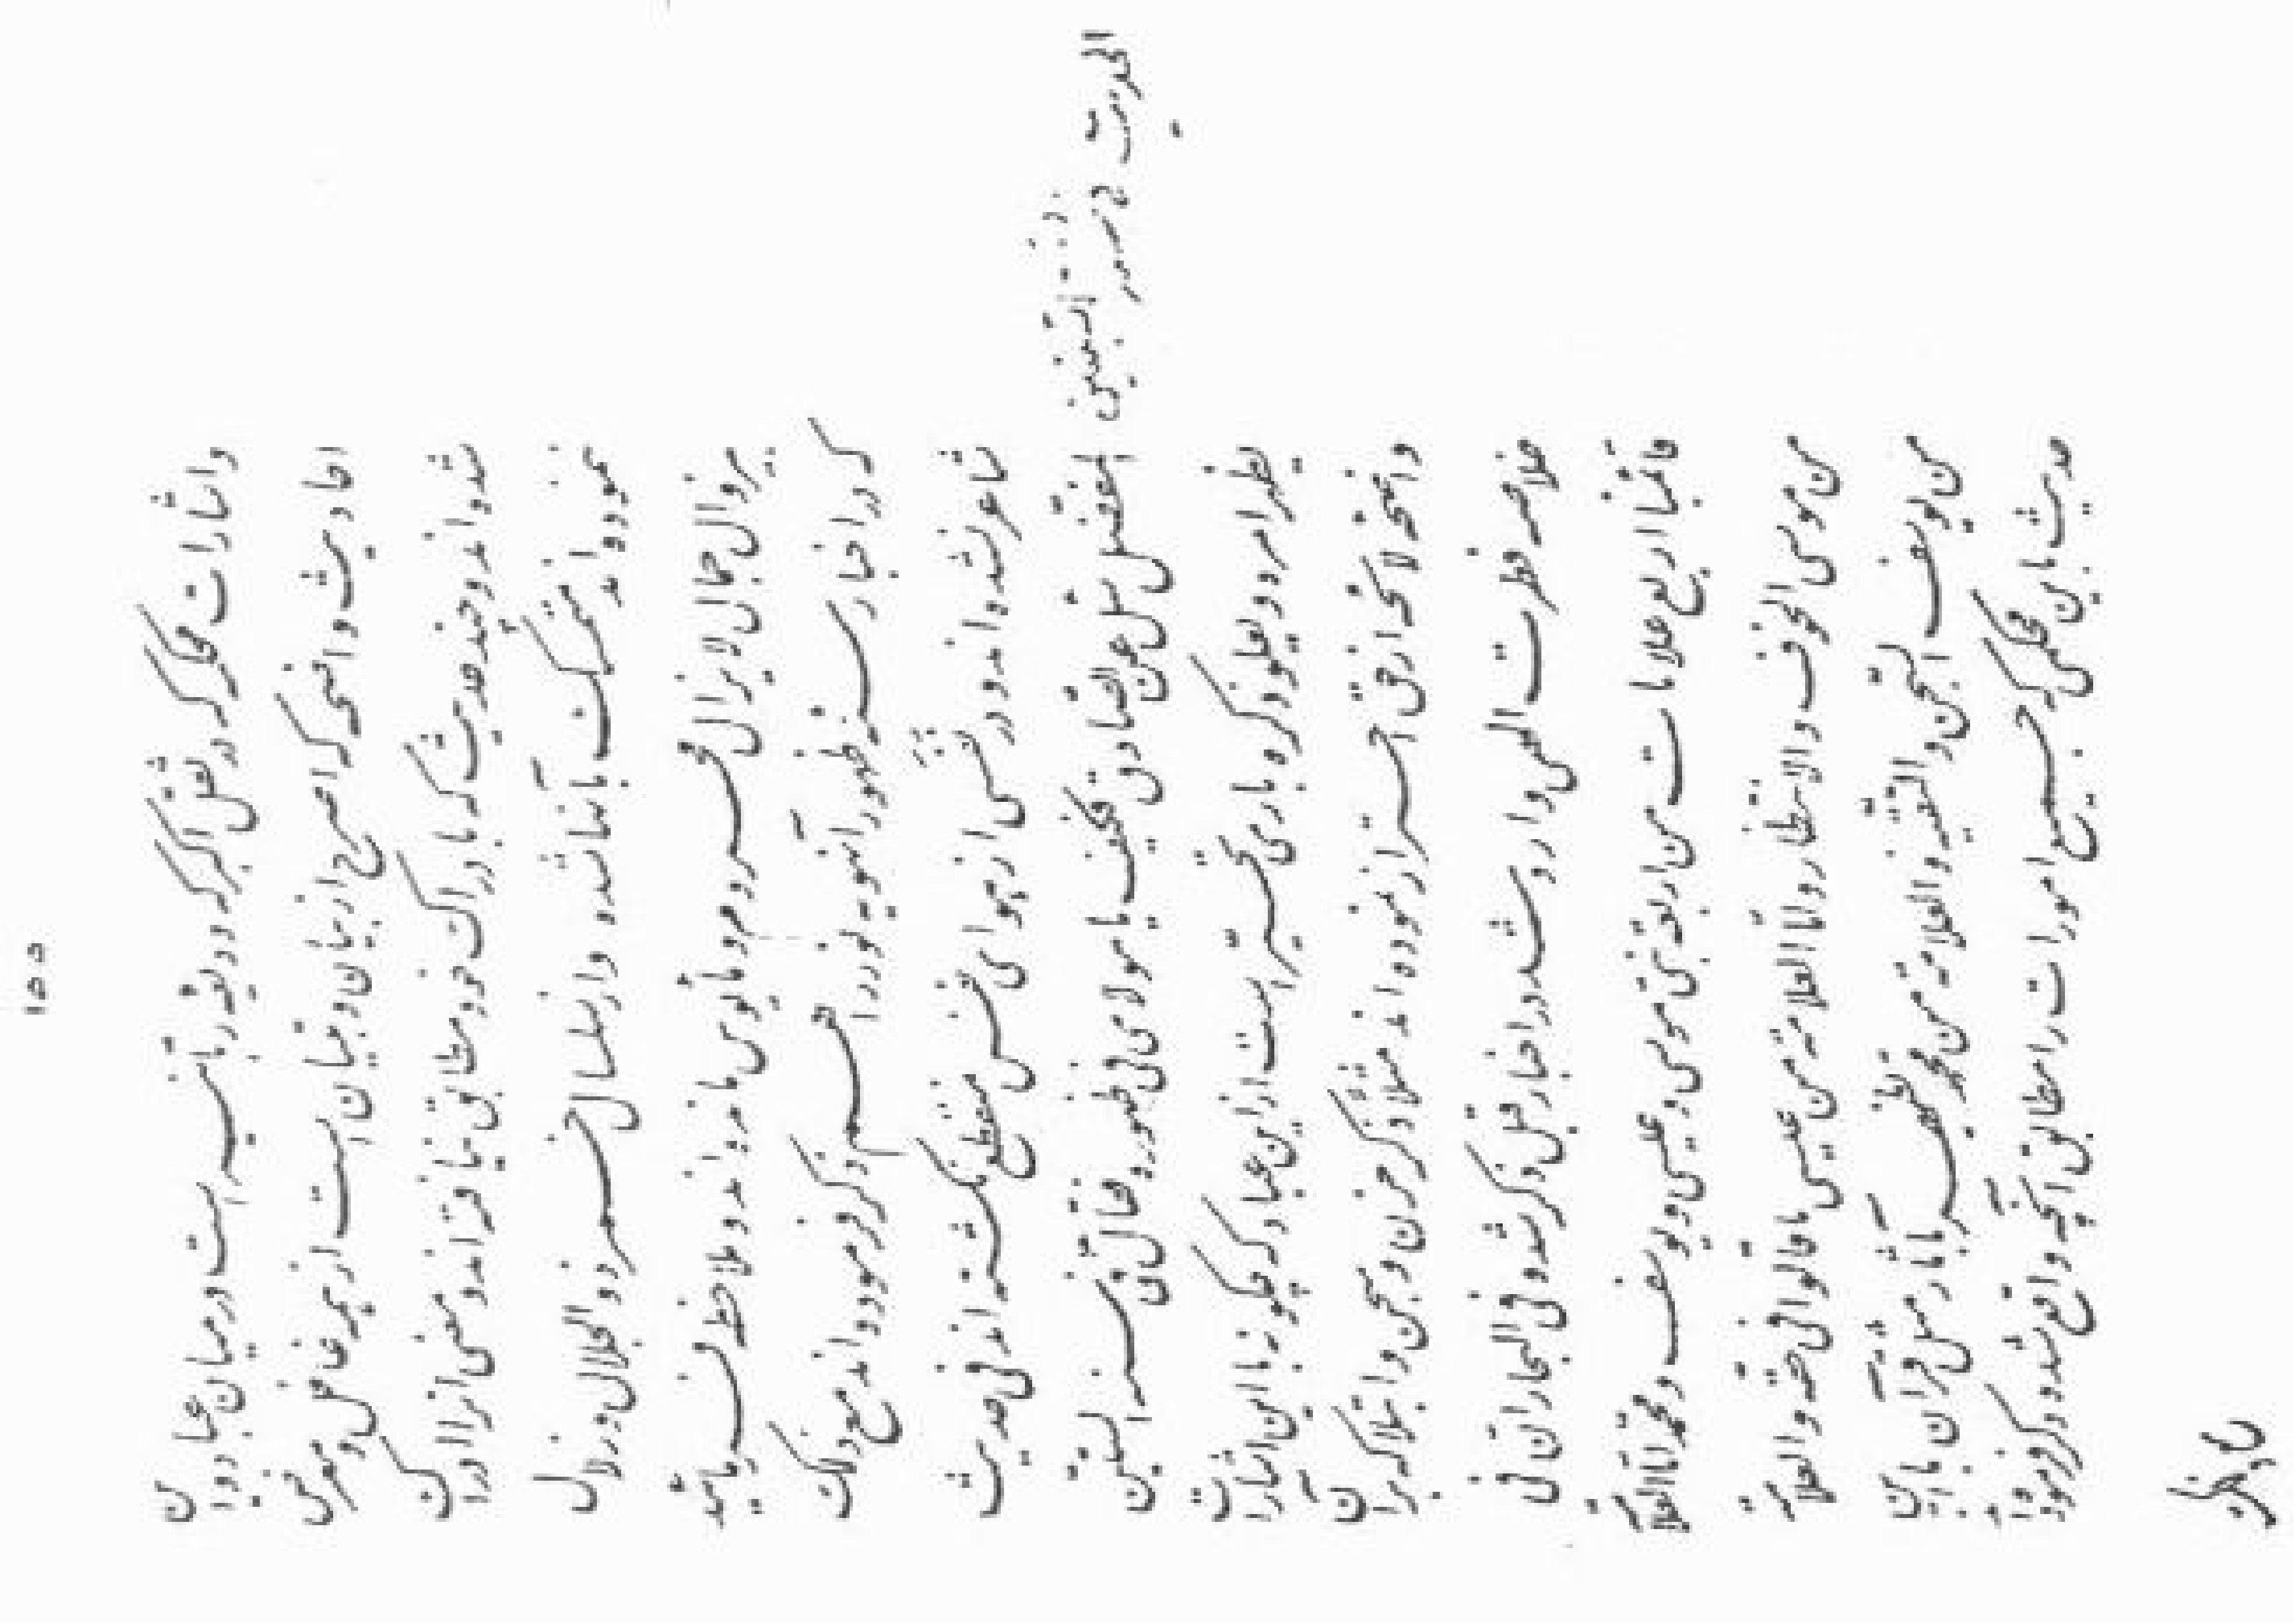 ۱۵۵
واشارات محکمه که در ثقل اکبر که ودیعه ربّانیه است در میان عباد و این
احادیث واضحه که اصرح از بیان و تبیان است از همه غافل و معرض
شده‌اند و چند حدیث که بادراک خود مطابق نیافته‌اند و معنی آنرا ادراک
ننموده‌اند متمسّک بآنها شده و از سلسال خمر ذو الجلال و زلال
بیزوال جمال لایزال محروم و مأیوس مانده‌اند و ملاحظه فرمائید
که در اخبار سنه ظهور آنهویه نور را هم ذکر فرموده‌اند مع ذلک
شاعر نشده‌اند و در نفسی از هوای نفس منقطع نگشته‌اند فی حدیث
المفضّل سئل عن الصّادق فکیف یا مولای فی ظهوره فقال فی سنة السّتّین
یظهر امره و یعلو ذکره باری تحیّر است از این عباد که چگونه با این اشارات
واضحه لائحه از حق احتراز نموده‌اند مثلاً ذکر حزن و سجن و ابتلا که بر آن
خلاصه فطرت الهی وارد شد در اخبار قبل ذکر شده و فی البحار انّ فی
قائمنا اربع علامات من اربعة نبی موسی و عیسی و یوسف و محمّد امّا العلامة
من موسی الخوف و الانتظار و امّا العلامة من عیسی ما قالوا فی حقّه و العلامة
من یوسف السّجن و التقیة و العلامة من محمّد یظهر بآثار مثل قرآن با این
حدیث باین محکمی که جمیع امورات را مطابق آنچه واقع شد ذکر فرموده‌اند